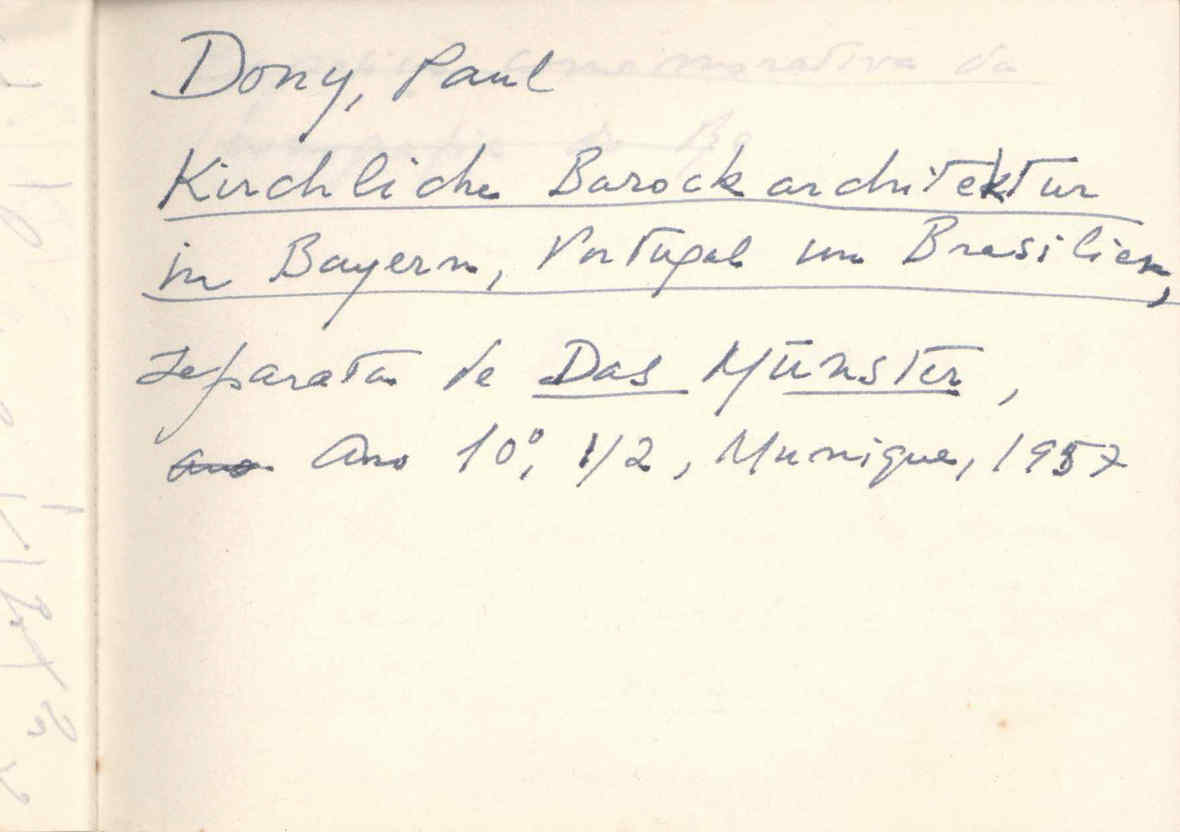 Dony, Paul
Kirchliche Barockarchitektur
in Bayern, Portugal un Brasilien,
separata de Das Münster,
ano Ano 10º, 1/2, Munique, 1957